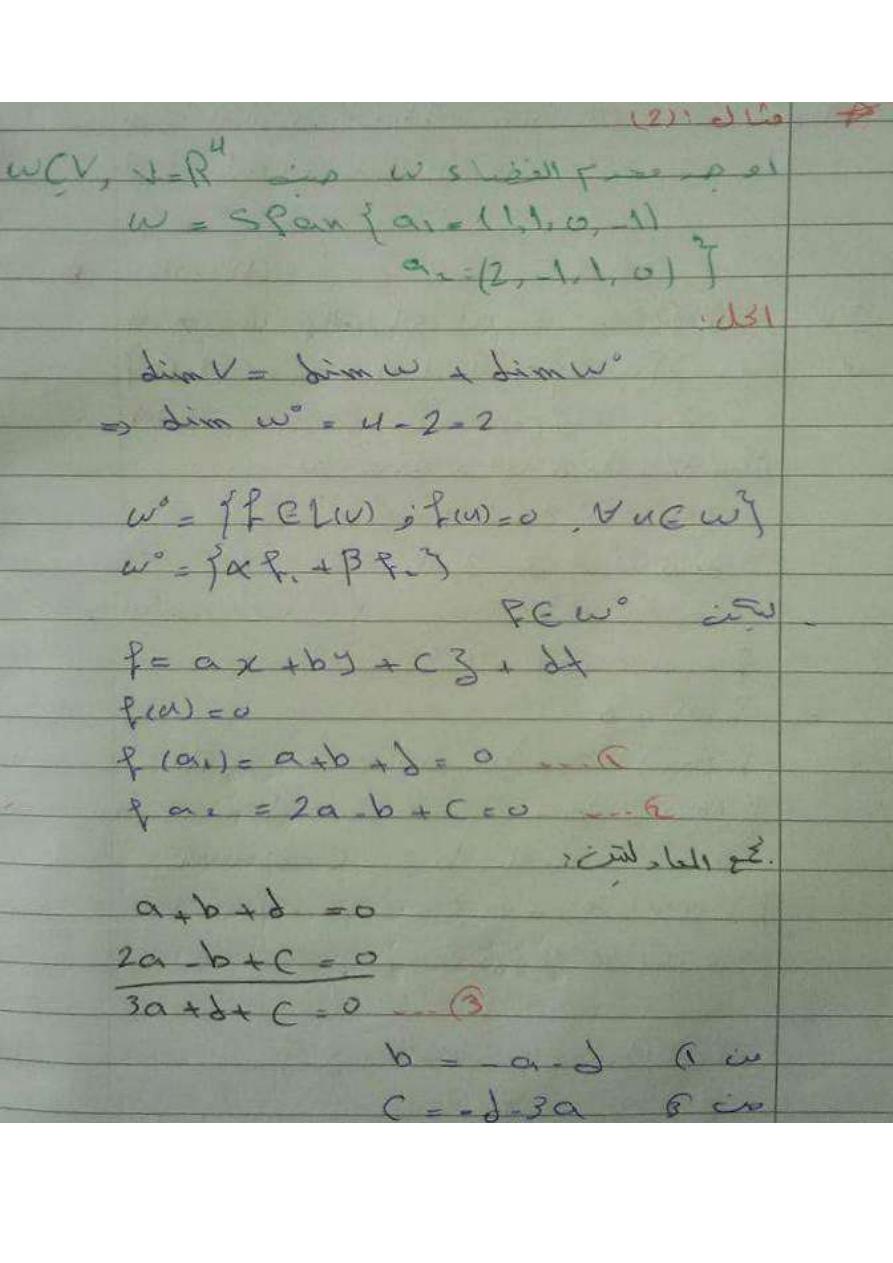 مثال (2):
اوجد معدم الفضاء W حيث W⊆V, V=R⁴
W = Span{a₁ = (1,1,0,-1)
a₂ = (2,-1,1,0)}
الحل:
dim V = dim W + dim W°
⇒ dim W° = 4-2=2
W° = {f ∈ L(V) ; f(u)=0 , ∀ u ∈ W}
W° = {α f₁ + β f₂}
- ليكن f ∈ W°
f = ax + by + cz + dt
f(u) = 0
f(a₁) = a+b+d = 0 ....①
f a₂ = 2a-b+c=0 ....②
نجمع المعادلتين:
a+b+d =0
2a-b+c=0
3a+d+c=0 ....③
من ① b = -a-d
من ③ c = -d-3a